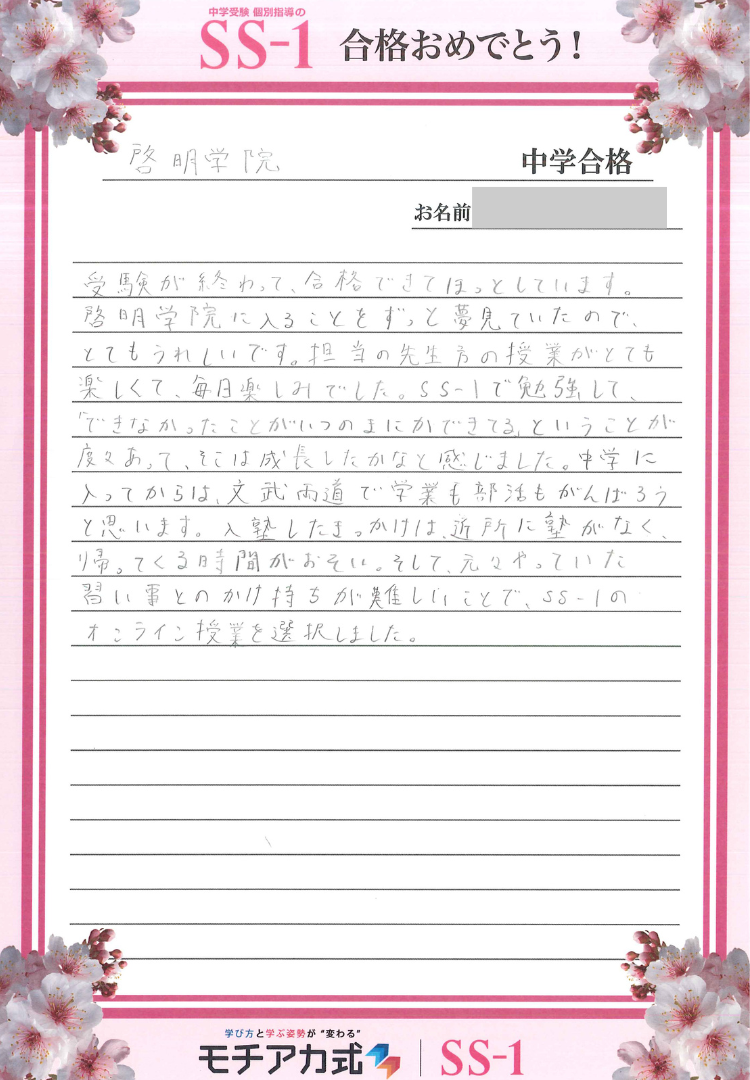 中学受験 個別指導の
SS-1 合格おめでとう!
啓明学院 中学合格
お名前
受験が終わって、合格できてほっとしています。
啓明学院に入ることをずっと夢見ていたので、
とてもうれしいです。担当の先生方の授業がとても
楽しくて、毎日楽しみでした。SS-1で勉強して、
「できなかったことがいつのまにかできてる」ということが
度々あって、そこは成長したかなと感じました。中学に
入ってからは、文武両道で学業も部活もがんばろう
と思います。入塾したきっかけは、近所に塾がなく、
帰ってくる時間がおそい。そして、元々やっていた
習い事とのかけ持ちが難しいことで、SS-1の
オンライン授業を選択しました。
学び方と学ぶ姿勢が“変わる”
モチアカ式 SS-1